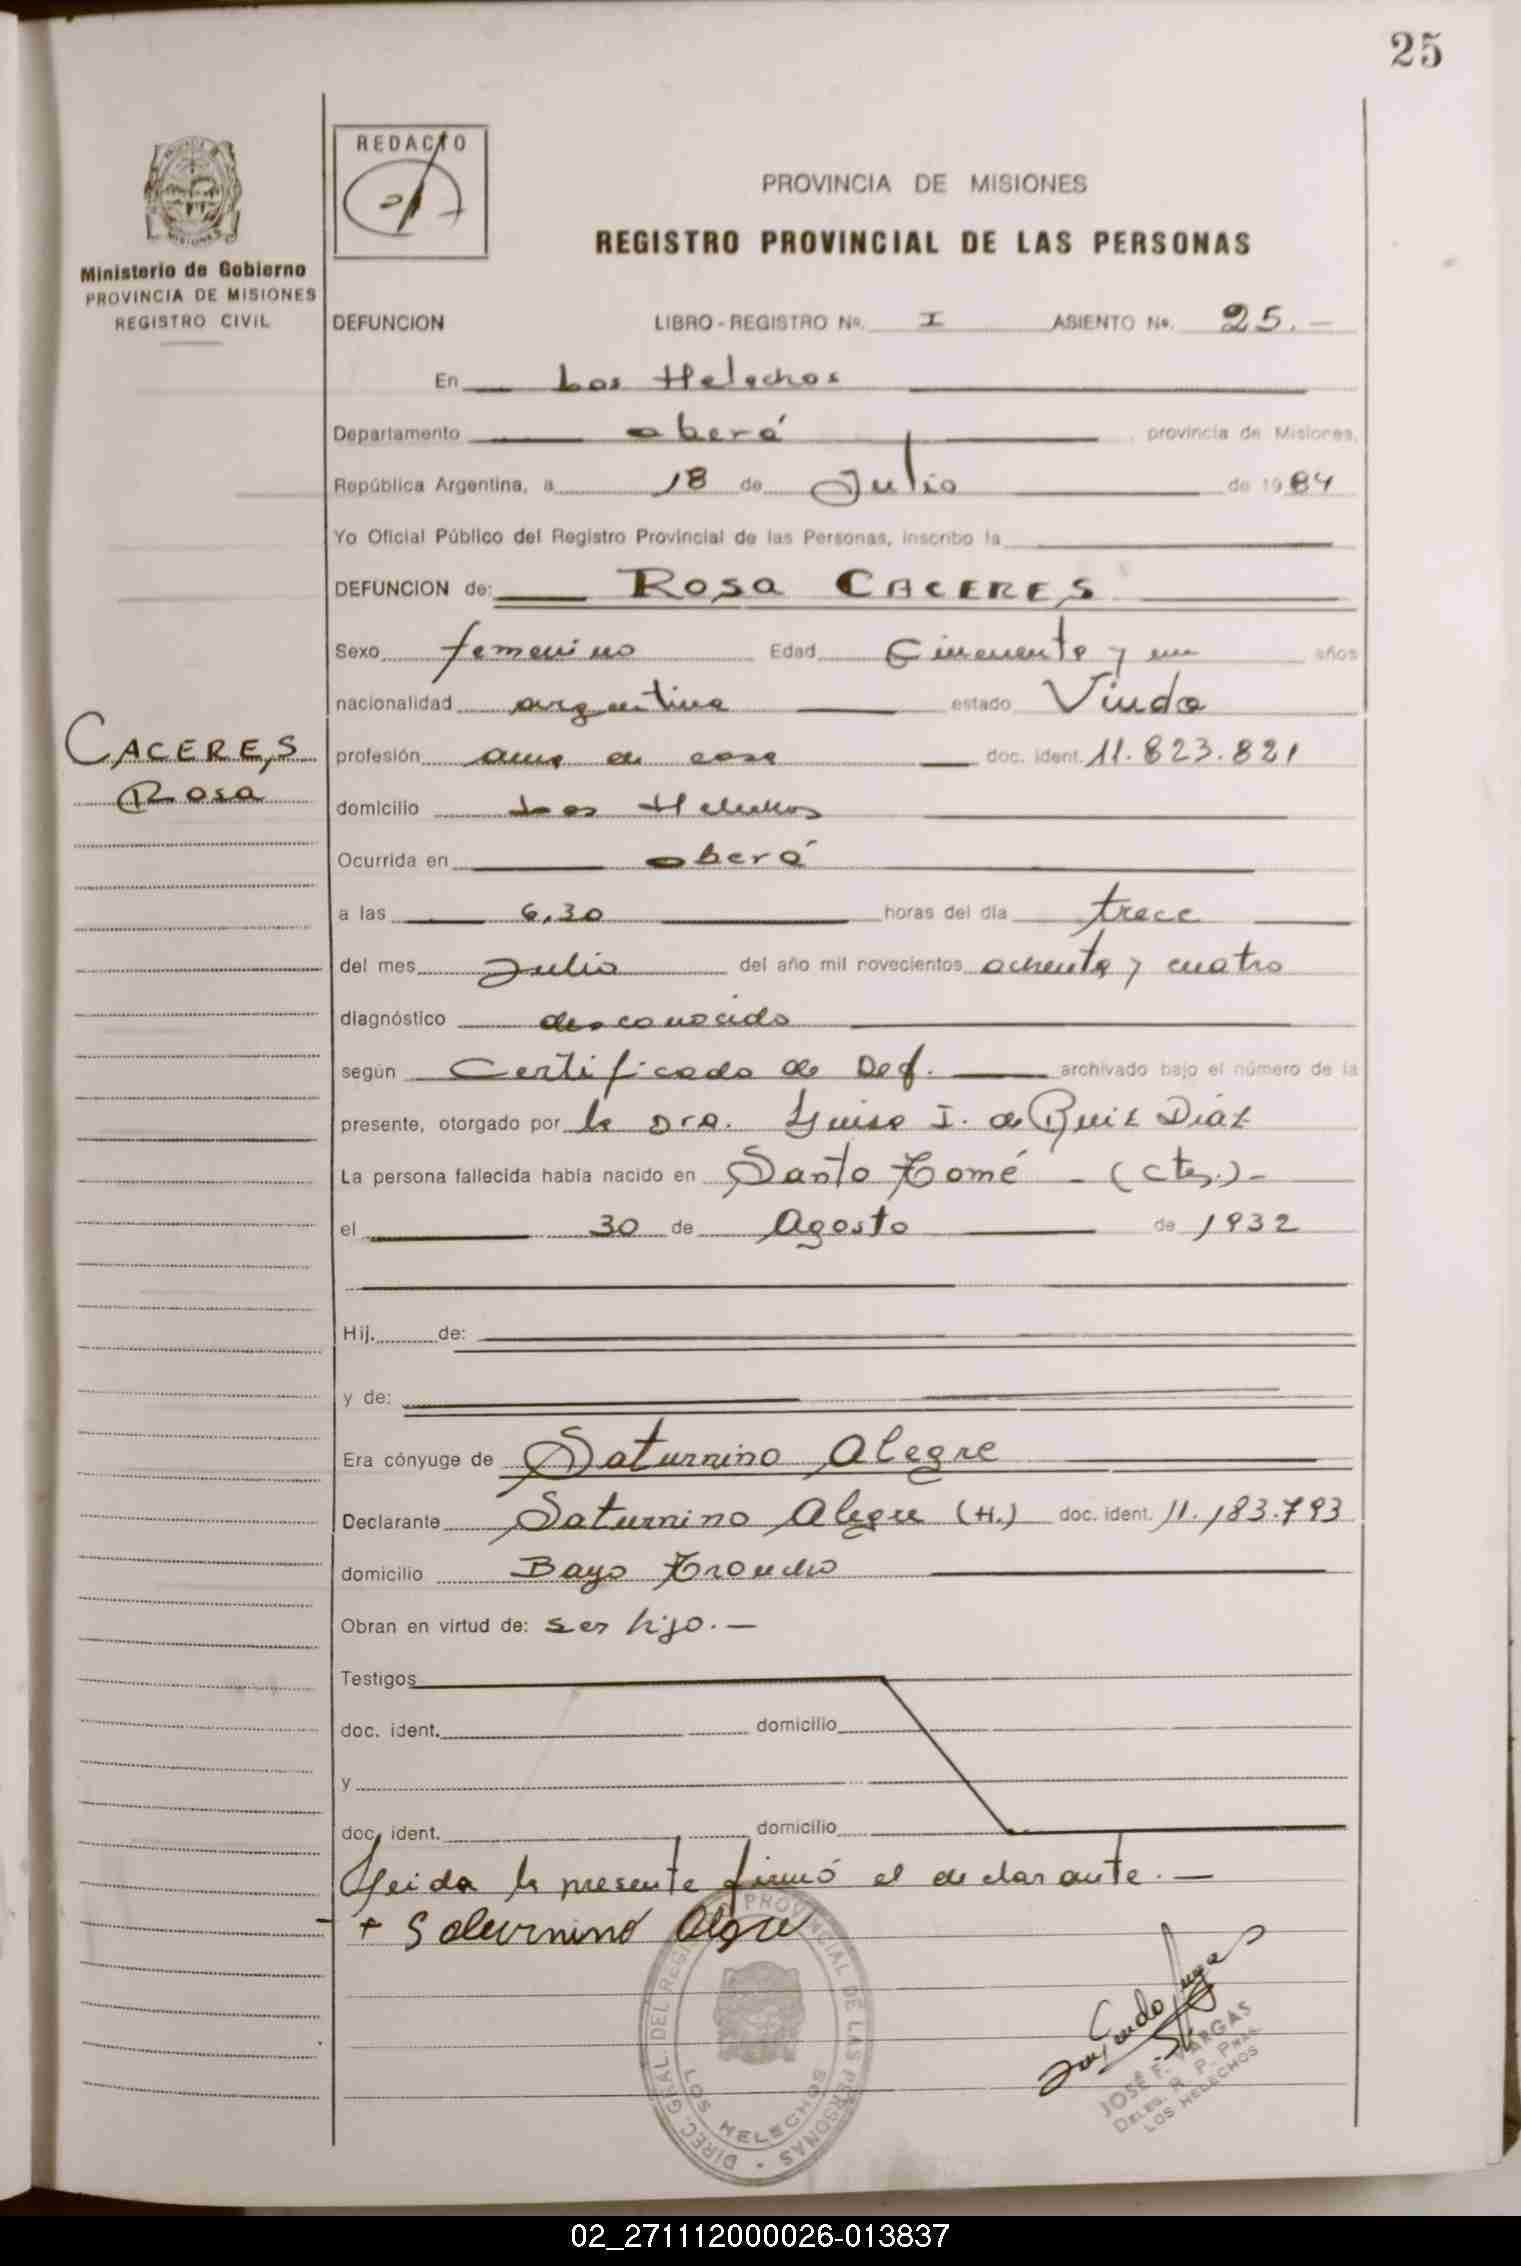 25
REDACTO
PROVINCIA DE MISIONES
REGISTRO PROVINCIAL DE LAS PERSONAS
Ministerio de Gobierno
PROVINCIA DE MISIONES
REGISTRO CIVIL
DEFUNCION LIBRO-REGISTRO No. I ASIENTO No. 25.-
En Los Helechos
Departamento oberá provincia de Misiones,
República Argentina, a 18 de Julio de 1984
Yo Oficial Público del Registro Provincial de las Personas, inscribo la
DEFUNCION de: ROSA CACERES
Sexo femenino Edad Cincuenta y un años
nacionalidad argentina estado Viuda
CACERES
Rosa
profesión ama de casa doc. ident. 11.823.821
domicilio Los Helechos
Ocurrida en oberá
a las 6,30 horas del día trece
del mes Julio del año mil novecientos ochenta y cuatro
diagnóstico desconocido
según Certificado de Def. archivado bajo el número de la
presente, otorgado por la Dra. Luisa I. de Ruiz Diaz
La persona fallecida había nacido en Santo Tomé - (Ctes.)-
el 30 de Agosto de 1932
Hij. de:
y de:
Era cónyuge de Saturnino Alegre
Declarante Saturnino Alegre (H.) doc. ident. 11.183.793
domicilio Bayo Troncho
Obran en virtud de: ser hijo.-
Testigos
doc. ident. domicilio
y
doc. ident. domicilio
Leida la presente firmó el declarante.-
+ Saturnino Alegre
DIREC. GRAL. DEL REGISTRO PROVINCIAL DE LAS PERSONAS
LOS HELECHOS
JOSÉ F. VARGAS
DELEG. R. P. PRAS.
LOS HELECHOS
02_271112000026-013837